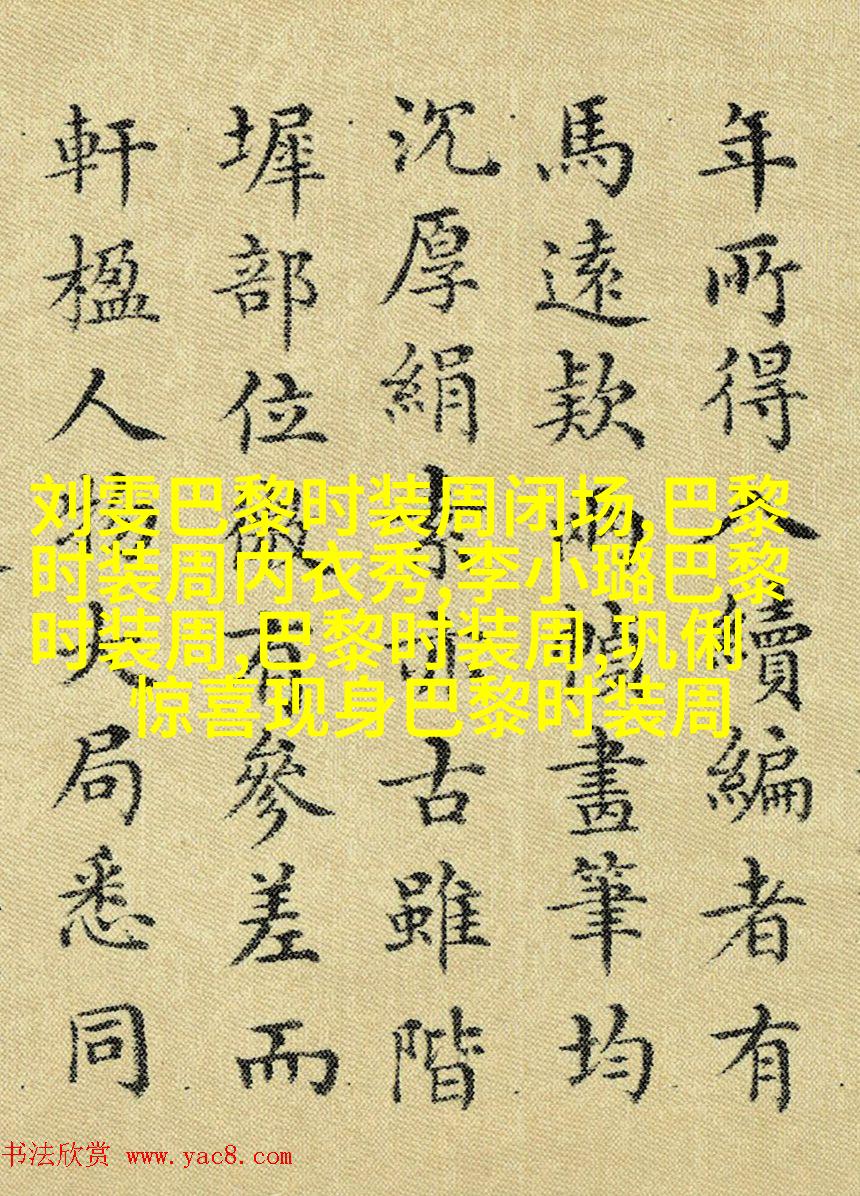 年所得入續編者有
馬遠欵兩幅畫筆均
沉厚絹素亦古雖階
墀部位微有參差而
軒楹人物大局悉同
刘雯巴黎时装周闭场,巴黎
时装周内衣秀,李小璐巴黎
时装周,巴黎时装周,巩俐
惊喜现身巴黎时装周
书法欣赏 www.yac8.com